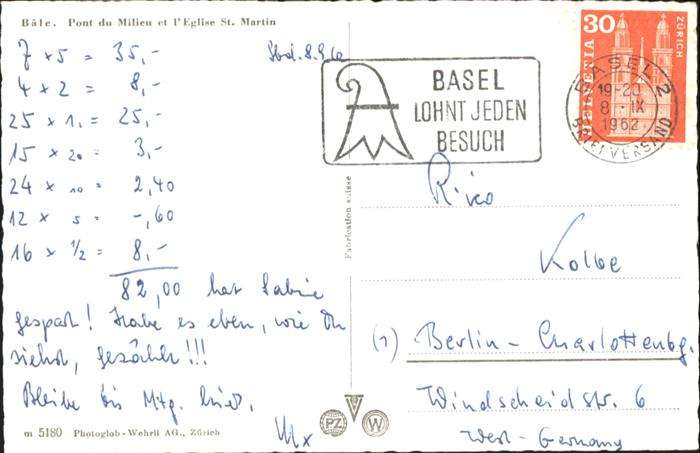 Bâle. Pont du Milieu et l'Eglise St. Martin
7 x 5 = 35,-
4 x 2 = 8,-
25 x 1. = 25,-
15 x 20 = 3,-
24 x 10 = 2,40
12 x 5 = -,60
16 x 1/2 = 8,-
82,00 hat Sabine
gespart! Habe es eben, wie Du
siehst, gezählt!!!
Bleibe bis Mtg. hier.
m 5180 Photoglob-Wehrli AG., Zürich
Fabrication suisse
PZ
W
BASEL
LOHNT JEDEN
BESUCH
30
HELVETIA
ZÜRICH
BASEL 2
19-20
8.IX
1962
BRIEFVERSAND
Rico
Kolbe
(1) Berlin-Charlottenbg.
Windscheidstr. 6
West-Germany